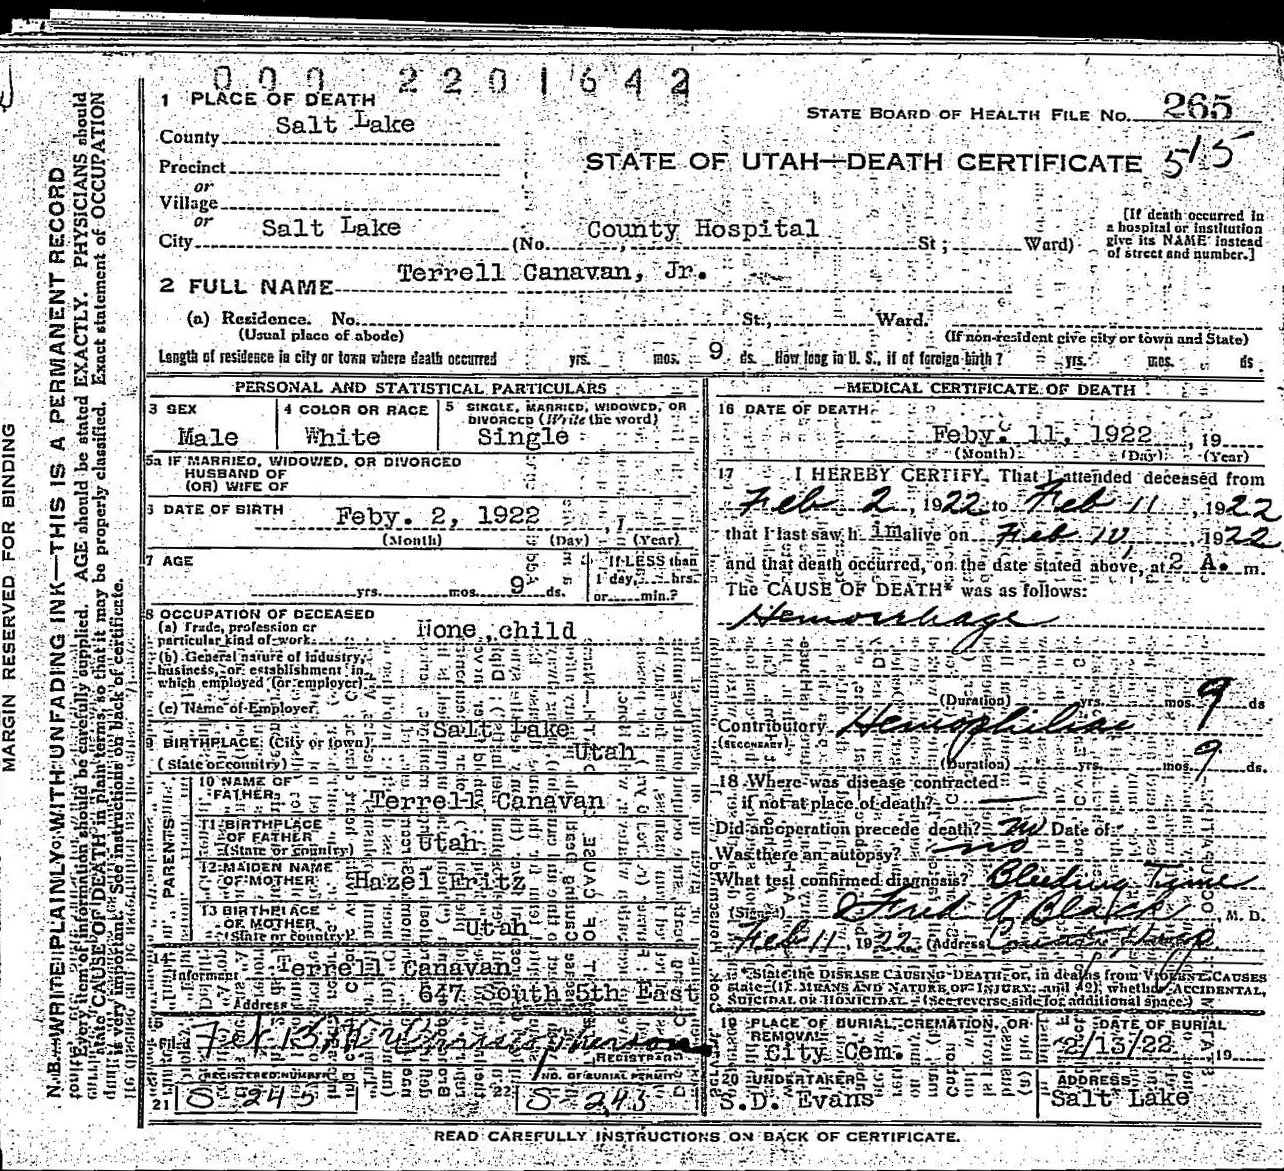 000 2201642
1 PLACE OF DEATH
STATE BOARD OF HEALTH FILE No. 265
County Salt Lake
STATE OF UTAH—DEATH CERTIFICATE 515
Precinct
or
Village
or
City Salt Lake (No. County Hospital St; Ward)
[If death occurred in
a hospital or institution
give its NAME instead
of street and number.]
2 FULL NAME Terrell Canavan, Jr.
(a) Residence. No. St., Ward.
(Usual place of abode) (If non-resident give city or town and State)
Length of residence in city or town where death occurred yrs. mos. 9 ds. How long in U. S., if of foreign birth? yrs. mos. ds
PERSONAL AND STATISTICAL PARTICULARS
3 SEX
Male
4 COLOR OR RACE
White
5 SINGLE, MARRIED, WIDOWED, OR
DIVORCED (Write the word)
Single
5a IF MARRIED, WIDOWED, OR DIVORCED
HUSBAND OF
(OR) WIFE OF
DATE OF BIRTH Feby. 2, 1922
(Month) (Day) (Year)
7 AGE
yrs. mos. 9 ds.
If LESS than
1 day, hrs.
or min.?
8 OCCUPATION OF DECEASED
(a) Trade, profession or
particular kind of work None, child
(b) General nature of industry,
business, or establishment in
which employed (or employer)
(c) Name of Employer
9 BIRTHPLACE (City or town) Salt Lake
(State or country) Utah
PARENTS
10 NAME OF
FATHER Terrell Canavan
11 BIRTHPLACE
OF FATHER
(State or country) Utah
12 MAIDEN NAME
OF MOTHER Hazel Fritz
13 BIRTHPLACE
OF MOTHER
(State or country) Utah
14
Informant Terrell Canavan
Address 647 South 5th East
15
Filed Feb 13
REGISTRAR
REGISTERED NUMBER
21 S-245
NO. OF BURIAL PERMIT
22 S-243
MEDICAL CERTIFICATE OF DEATH
16 DATE OF DEATH
Feby. 11, 1922, 19
(Month) (Day) (Year)
17 I HEREBY CERTIFY, That I attended deceased from
Feb 2, 1922 to Feb 11, 1922
that I last saw h im alive on Feb 10, 1922
and that death occurred, on the date stated above, at 2 A. m.
The CAUSE OF DEATH* was as follows:
Hemorrhage
(Duration) yrs. mos. 9 ds
Contributory Hemophiliac
(SECONDARY)
(Duration) yrs. mos. 9 ds.
18 Where was disease contracted
if not at place of death?
Did an operation precede death? no Date of
Was there an autopsy? no
What test confirmed diagnosis? Bleeding Tyme
(Signed) Fred A Black M. D.
Feb 11, 1922 (Address) County Hosp
*State the DISEASE CAUSING DEATH or, in deaths from VIOLENT CAUSES
state (1) MEANS AND NATURE OF INJURY; and (2) whether ACCIDENTAL,
SUICIDAL OR HOMICIDAL. (See reverse side for additional space.)
19 PLACE OF BURIAL, CREMATION, OR
REMOVAL
City Cem.
DATE OF BURIAL
2/13/22 19
20 UNDERTAKER
S.D. Evans
ADDRESS
Salt Lake
READ CAREFULLY INSTRUCTIONS ON BACK OF CERTIFICATE.
MARGIN RESERVED FOR BINDING
N. B.—WRITE PLAINLY, WITH UNFADING INK—THIS IS A PERMANENT RECORD
Every item of information should be carefully supplied. AGE should be stated EXACTLY. PHYSICIANS should
state CAUSE OF DEATH in plain terms, so that it may be properly classified. Exact statement of OCCUPATION
is very important. See instructions on back of certificate.